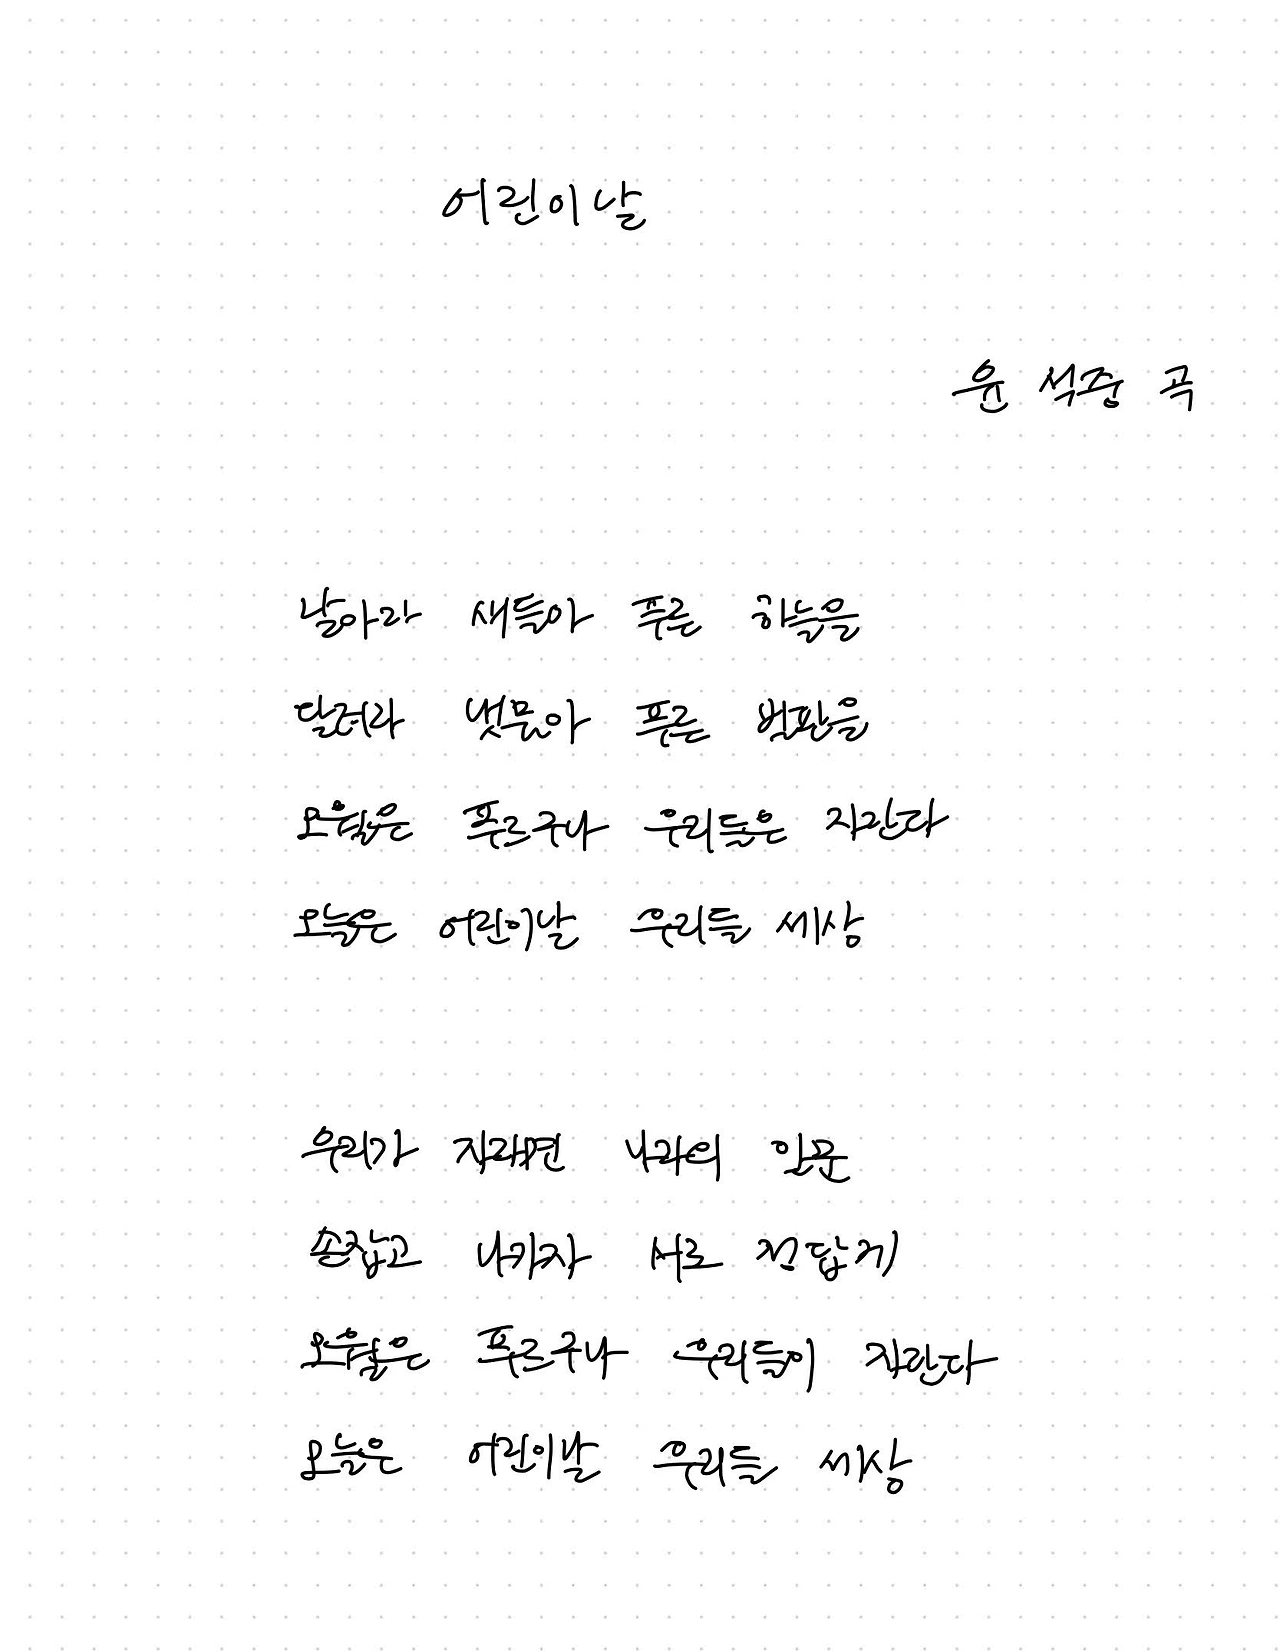 어린이날
윤석중 곡
날아라 새들아 푸른 하늘을
달려라 냇물아 푸른 벌판을
오월은 푸르구나 우리들은 자란다
오늘은 어린이날 우리들 세상
우리가 자라면 나라의 일꾼
손잡고 나가자 서로 정답게
오월은 푸르구나 우리들이 자란다
오늘은 어린이날 우리들 세상